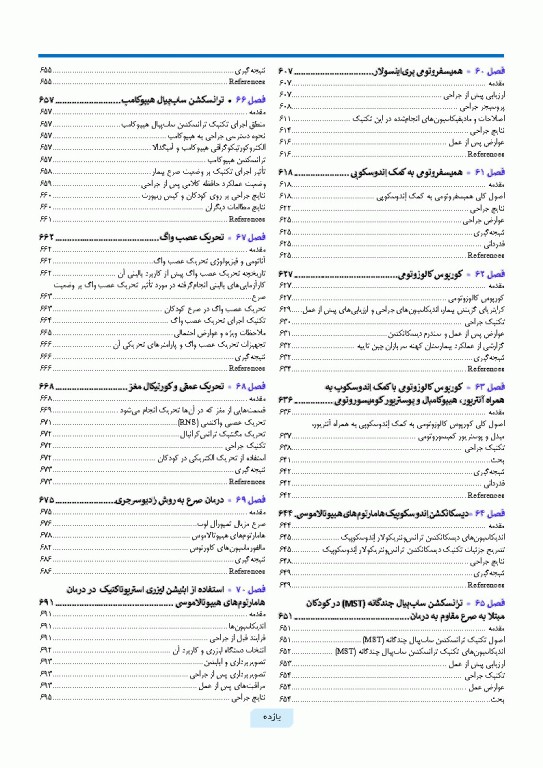 فصل ۶۰ • همیسفروتومی پری‌اینسولار ........ ۶۰۷
مقدمه ........ ۶۰۷
ارزیابی پیش از جراحی ........ ۶۰۷
پروسیجر جراحی ........ ۶۰۸
اصلاحات و مادیفیکاسیون‌های انجام‌شده در این تکنیک ........ ۶۱۱
نتایج جراحی ........ ۶۱۴
عوارض پس از عمل ........ ۶۱۶
References ........ ۶۱۶
فصل ۶۱ • همیسفروتومی به کمک اِندوسکوپی ........ ۶۱۸
مقدمه ........ ۶۱۸
اصول کلی همیسفروتومی به کمک اِندوسکوپی ........ ۶۱۸
نتایج جراحی ........ ۶۲۲
عوارض جراحی ........ ۶۲۵
نتیجه گیری ........ ۶۲۵
قدردانی ........ ۶۲۵
References ........ ۶۲۵
فصل ۶۲ • کورپوس کالوزوتومی ........ ۶۲۷
مقدمه ........ ۶۲۷
کورپوس کالوزوتومی ........ ۶۲۷
کرایتریای گزینش بیمار، اندیکاسیون‌های جراحی و ارزیابی‌های پیش از عمل ........ ۶۲۹
تکنیک جراحی ........ ۶۳۰
عوارض پس از عمل و سندرم دیسکانکشن ........ ۶۳۱
گزارشی از عملکرد بیمارستان کهنه سربازان چین تایپه ........ ۶۳۲
نتیجه گیری ........ ۶۳۲
References ........ ۶۳۴
فصل ۶۳ • کورپوس کالوزوتومی با کمک اِندوسکوپ به
همراه آنتریور، هیپوکامپال و پوستریور کومیسوروتومی ........ ۶۳۶
مقدمه ........ ۶۳۶
اصول کلی کورپوس کالوزوتومی به کمک اِندوسکوپی به همراه آنتریور،
میدل و پوستریور کمیسوروتومی ........ ۶۳۷
تکنیک جراحی ........ ۶۳۸
بحث ........ ۶۴۱
نتیجه گیری ........ ۶۴۲
قدردانی ........ ۶۴۲
References ........ ۶۴۲
فصل ۶۴ • دیسکانکشن اِندوسکوپیک هامارتوم‌های هیپوتالاموسی ........ ۶۴۴
مقدمه ........ ۶۴۴
اندیکاسیون‌های دیسکانکشن ترانس‌ونتریکولار اِندوسکوپیک ........ ۶۴۵
تشریح جزئیات تکنیک دیسکانکشن ترانس‌ونتریکولار اِندوسکوپیک ........ ۶۴۵
نتایج جراحی ........ ۶۴۸
نتیجه گیری ........ ۶۴۹
References ........ ۶۴۹
فصل ۶۵ • ترانسکشن ساب‌پیال چندگانه (MST) در کودکان
مبتلا به صرع مقاوم به درمان ........ ۶۵۱
مقدمه ........ ۶۵۱
اصول تکنیک ترانسکشن ساب‌پیال چندگانه (MST) ........ ۶۵۱
اندیکاسیون‌های تکنیک ترانسکشن ساب‌پیال چندگانه (MST) ........ ۶۵۲
ارزیابی پیش از عمل ........ ۶۵۳
تکنیک جراحی ........ ۶۵۴
عوارض عمل ........ ۶۵۴
بحث ........ ۶۵۴
نتیجه گیری ........ ۶۵۵
References ........ ۶۵۵
فصل ۶۶ • ترانسکشن ساب‌پیال هیپوکامپ ........ ۶۵۷
مقدمه ........ ۶۵۷
منطق اجرای تکنیک ترانسکشن ساب‌پیال هیپوکامپ ........ ۶۵۷
نحوه دسترسی جراحی به هیپوکامپ ........ ۶۵۷
الکتروکورتیکوگرافی هیپوکامپ و آمیگدالا ........ ۶۵۷
ترانسکشن هیپوکامپ ........ ۶۵۷
تأثیر اجرای تکنیک بر وضعیت صرع بیمار ........ ۶۵۸
وضعیت عملکرد حافظه کلامی پس از جراحی ........ ۶۵۹
نتایج جراحی بر روی کودکان و کیس ریپورت ........ ۶۶۰
نتایج مطالعات دیگران ........ ۶۶۰
References ........ ۶۶۱
فصل ۶۷ • تحریک عصب واگ ........ ۶۶۲
مقدمه ........ ۶۶۲
آناتومی و فیزیولوژی تحریک عصب واگ ........ ۶۶۲
تاریخچه تحریک عصب واگ پیش از کاربرد بالینی آن ........ ۶۶۲
کارآزمایی‌های بالینی انجام‌گرفته در مورد تأثیر تحریک عصب واگ بر وضعیت
صرع ........ ۶۶۳
تحریک عصب واگ در صرع کودکان ........ ۶۶۳
تکنیک اجرای تحریک عصب واگ ........ ۶۶۴
ملاحظات ویژه و عوارض احتمالی ........ ۶۶۵
تجهیزات تحریک عصب واگ و پارامترهای تحریکی آن ........ ۶۶۶
نتیجه گیری ........ ۶۶۶
References ........ ۶۶۶
فصل ۶۸ • تحریک عمقی و کورتیکال مغز ........ ۶۶۸
مقدمه ........ ۶۶۸
قسمت‌هایی از مغز که در آن‌ها تحریک انجام می‌شود ........ ۶۶۹
تحریک عصبی واکنشی (RNS) ........ ۶۷۱
تحریک مگنتیک ترانس‌کرانیال ........ ۶۷۲
تکنیک جراحی ........ ۶۷۲
استفاده از تحریک الکتریکی در کودکان ........ ۶۷۲
نتیجه گیری ........ ۶۷۳
References ........ ۶۷۳
فصل ۶۹ • درمان صرع به روش رادیوسرجری ........ ۶۷۵
مقدمه ........ ۶۷۵
صرع مزیال تمپورال لوب ........ ۶۷۶
هامارتوم‌های هیپوتالاموس ........ ۶۷۸
مالفورماسیون‌های کاورنوس ........ ۶۸۲
نتیجه گیری ........ ۶۸۶
References ........ ۶۸۶
فصل ۷۰ • استفاده از ابلیشن لیزری استریوتاکتیک در درمان
هامارتوم‌های هیپوتالاموسی ........ ۶۹۱
مقدمه ........ ۶۹۱
اندیکاسیون‌ها ........ ۶۹۱
فرآیند قبل از جراحی ........ ۶۹۱
انتخاب دستگاه لیزری و کاربرد آن ........ ۶۹۲
تصویربرداری و ابلیشن ........ ۶۹۳
تصویربرداری پس از جراحی ........ ۶۹۳
مراقبت‌های پس از عمل ........ ۶۹۳
نتایج جراحی ........ ۶۹۵
یازده